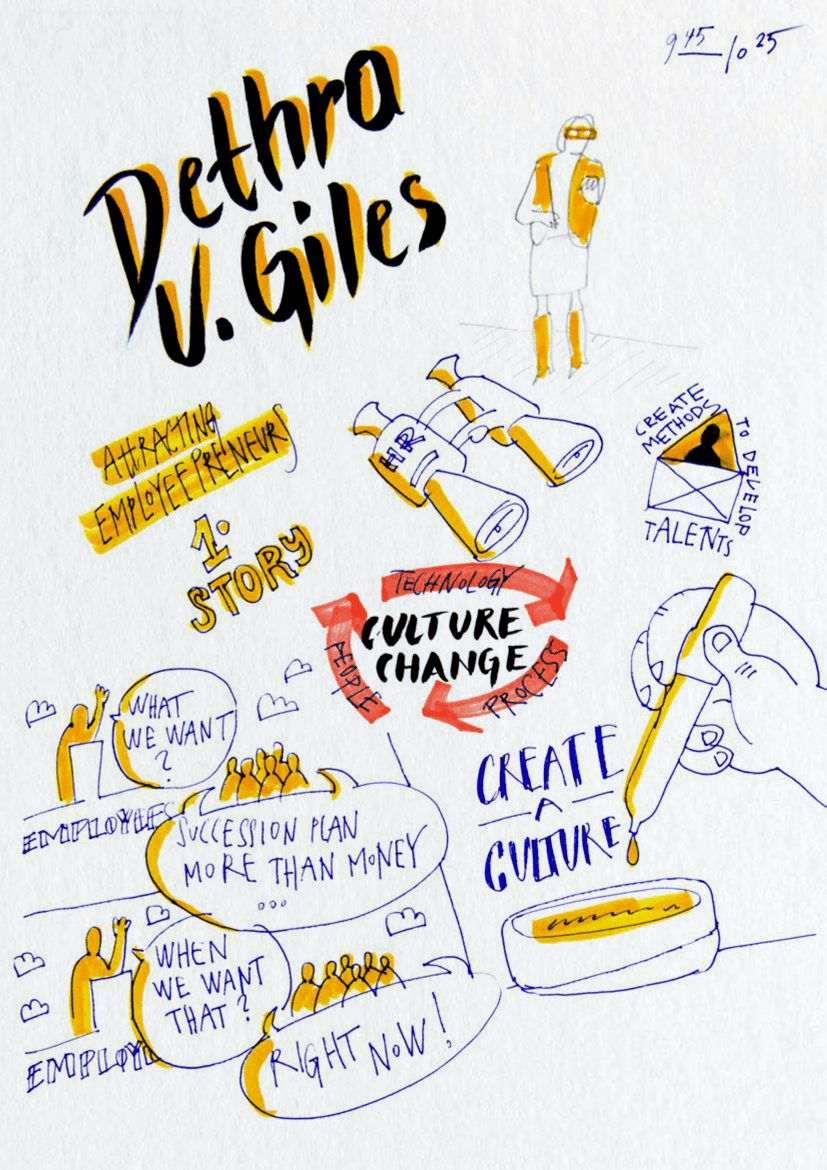 9 45 / 10 25
Dethra
V. Giles
ATTRACTING
EMPLOYEEPRENEURS
1.
STORY
HR
CREATE
METHODS
TO DEVELOP
TALENTS
TECHNOLOGY
PEOPLE
PROCESS
CULTURE
CHANGE
WHAT
WE WANT
?
EMPLOYEES
SUCCESSION PLAN
MORE THAN MONEY
...
CREATE
A
CULTURE
WHEN
WE WANT
THAT?
EMPLOYE
RIGHT NOW!